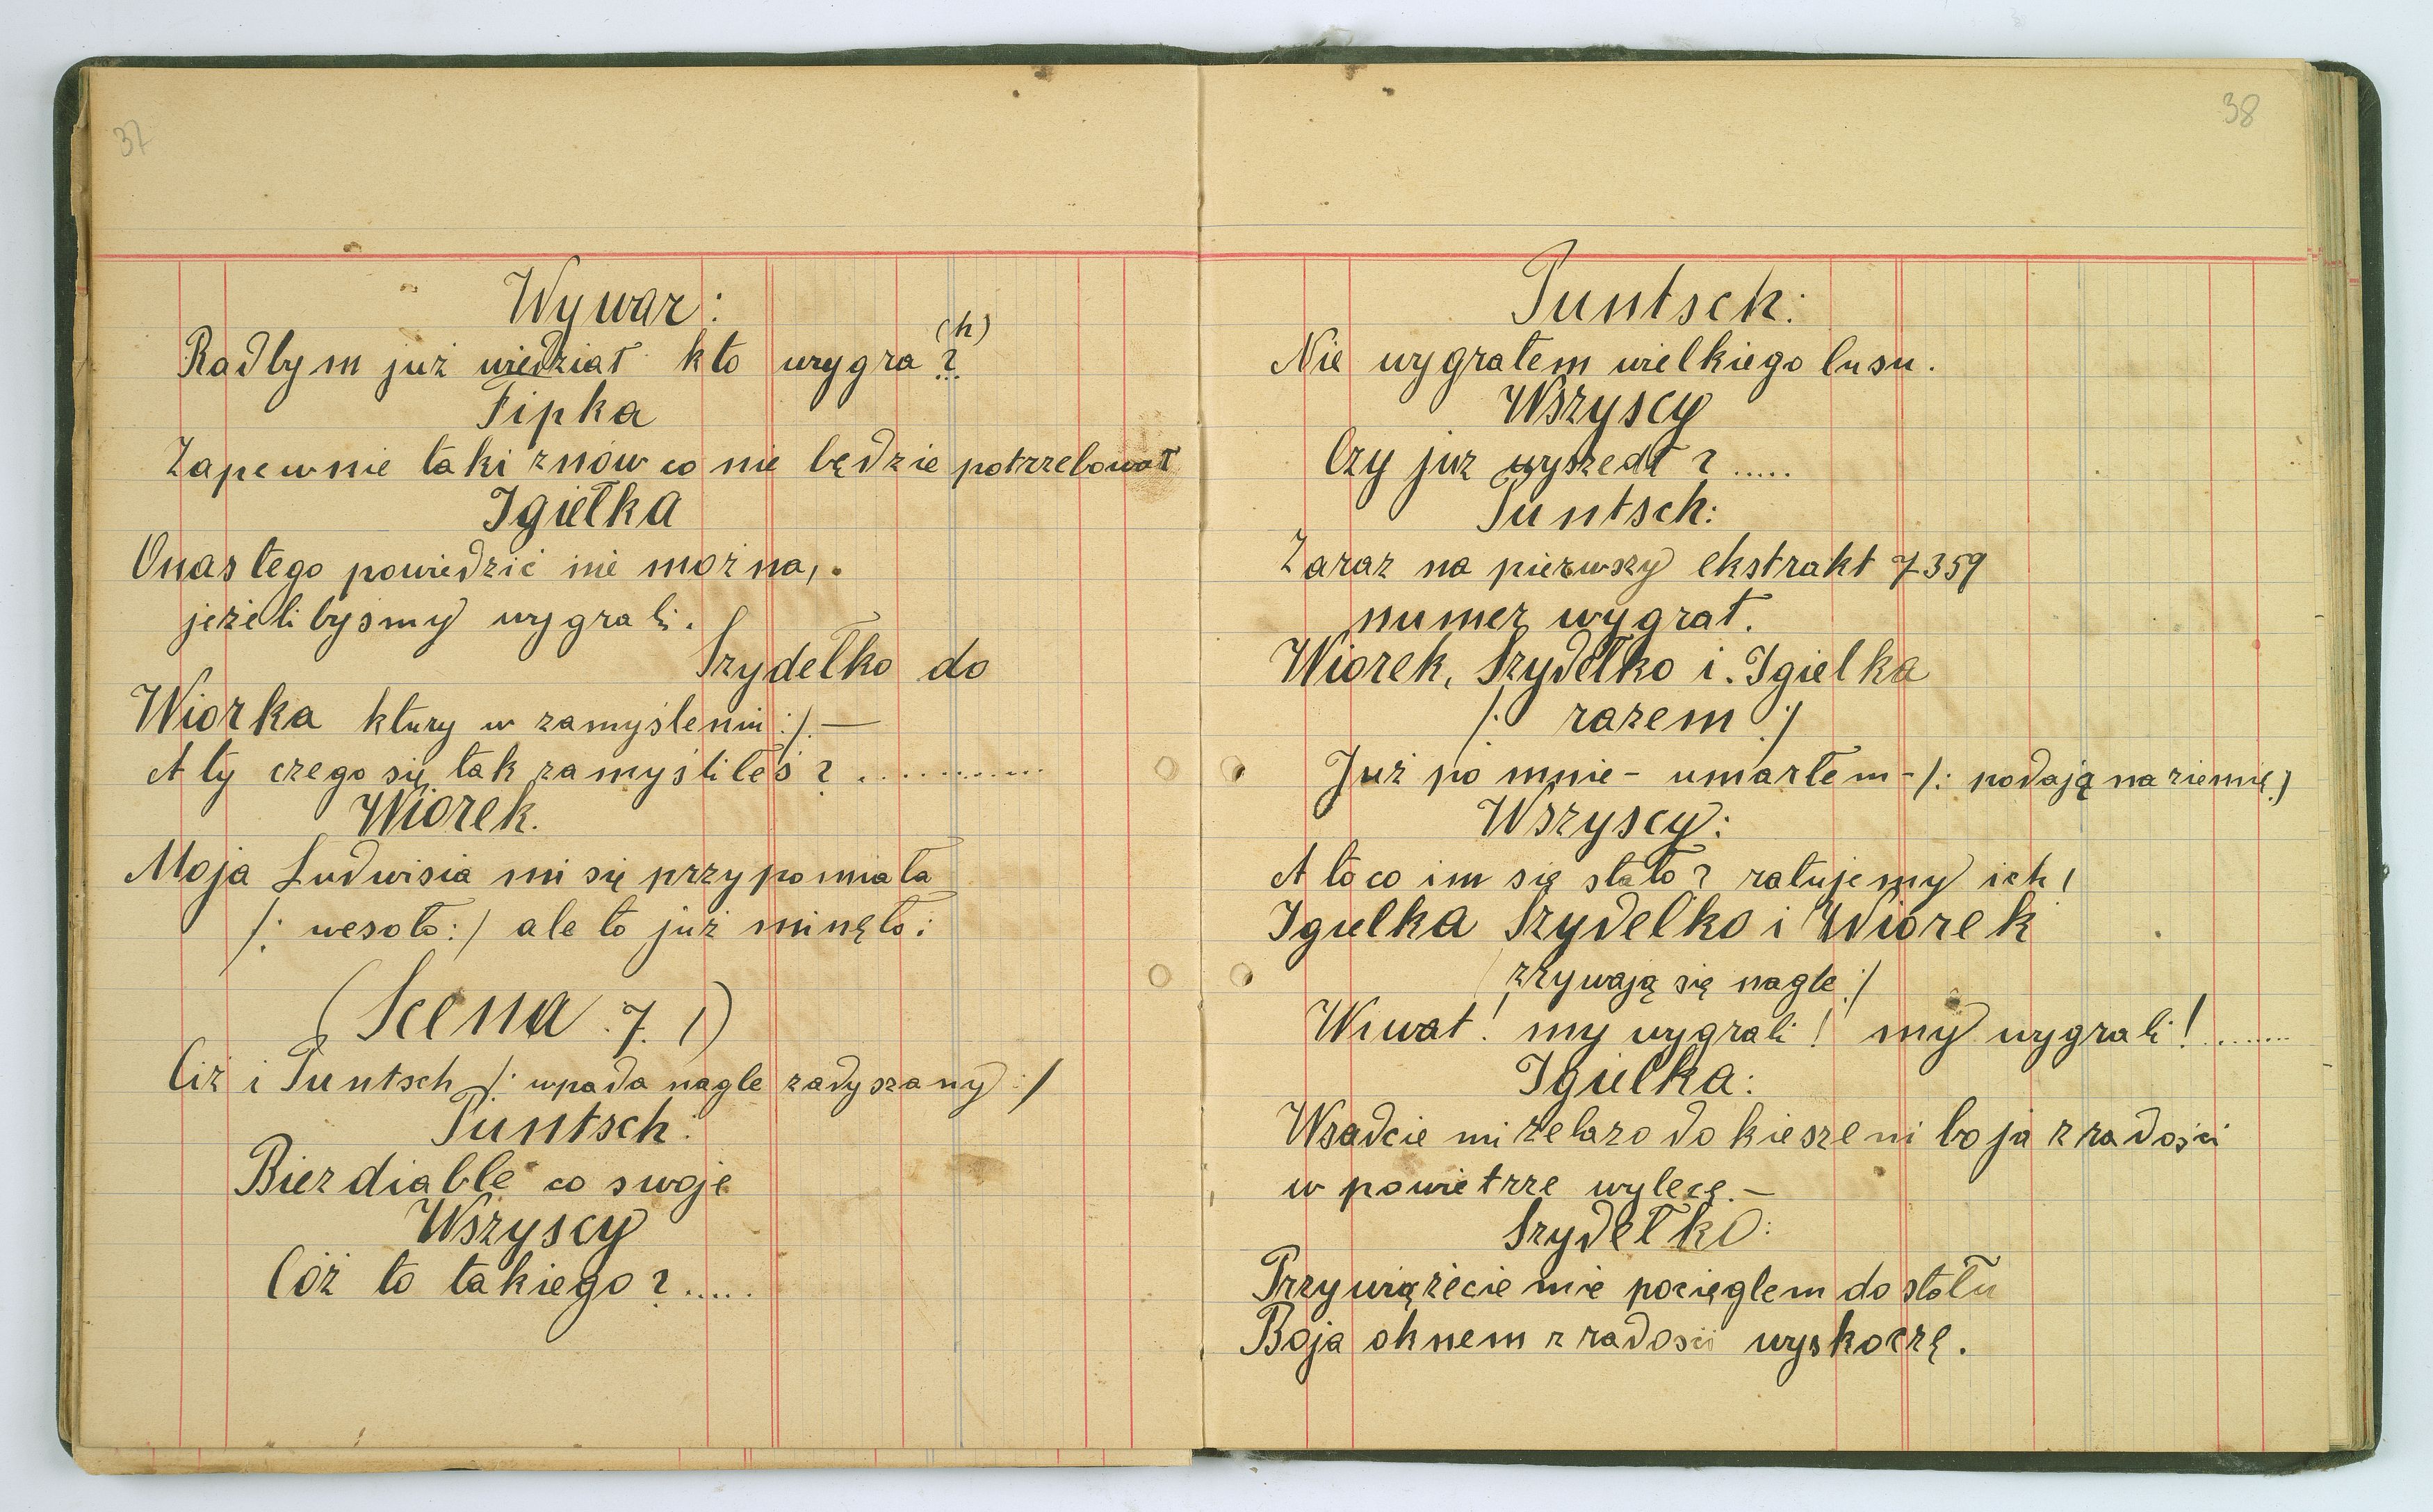 37
Wywar:
(h)
Radbym już wiedział kto wygra?
Fipka
Zapewnie taki znów co nie będzie potrzebował
Igiełka
Onas tego powiedzić nie można,.
jeżelibysmy wygrali.
Szydełko do
Wiorka ktury w zamyśleniu :/. —
A ty czego się tak zamyśliłeś? ............
Wiorek.
Moja Ludwisia mi się przypomniała
/: wesoło :/ ale to już minęło:
(Scena 7. !)
Ciż i Puntsch /: wpada nagle zadyszany :/
Puntsch:
Bierz diable co swoje
Wszyscy
Cóż to takiego?.....
38
Puntsch:
Nie wygrałem wielkiego lusu.
Wszyscy
Czy już wyszedł?.....
Puntsch:
Zaraz na pierwszy ekstrakt 7359
numer wygrał.
Wiorek, Szydełko i. Igielka
/: razem :/
Już po mnie – umarłem – /: podają na ziemię.)
Wszyscy:
A to co im się stało? ratujemy ich!
Igielka Szydełko i Wiórek
zrywają się nagle :/
Wiwat! my wygrali! my wygrali!.......
Igielka:
Wsadcie mi żelazo do kieszeni bo ja z radości
w powietrze wylecę. —
Szydełko:
Przywiążecie mie pocięglem do stołu
Boja oknem z radości wyskoczę.